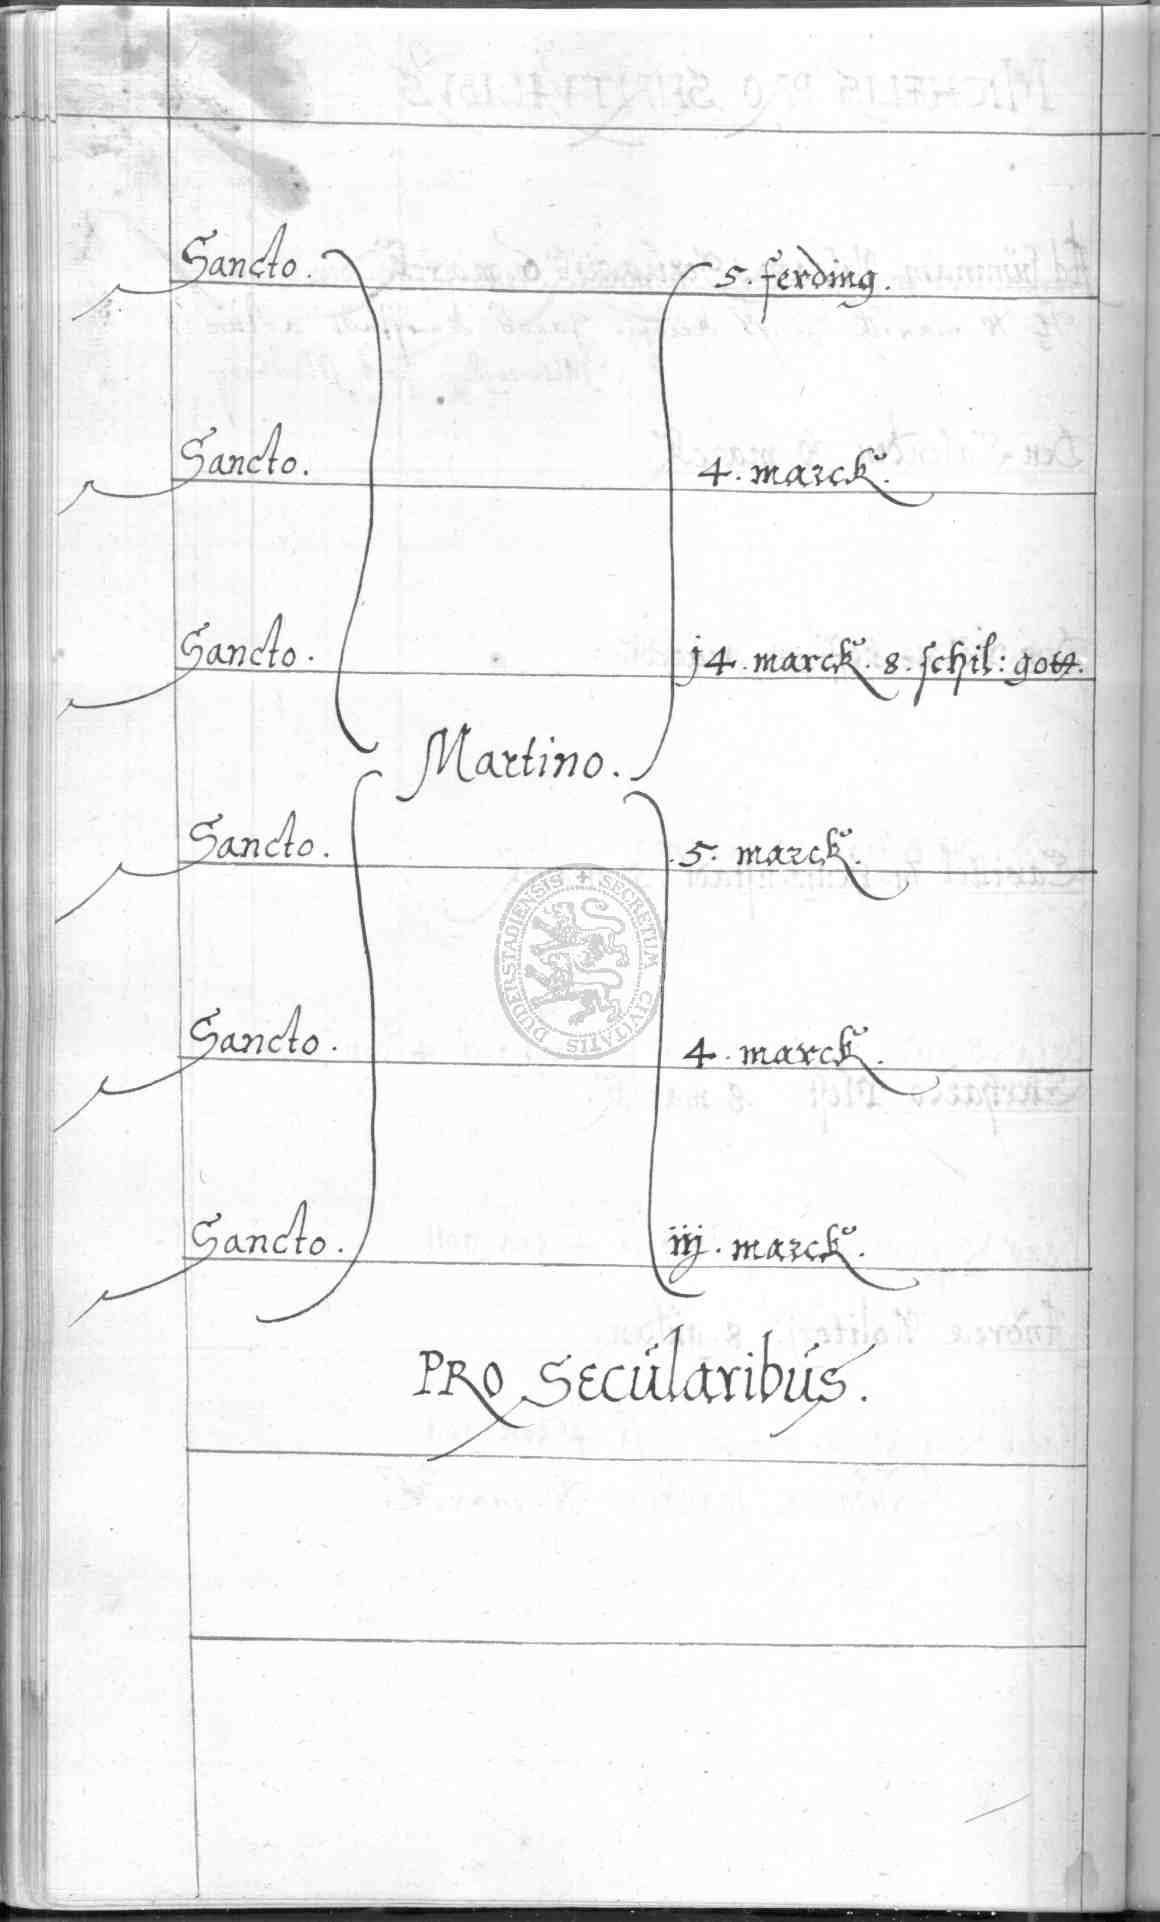 Sancto. 5. ferding.
Sancto. 4. marck.
Sancto. j4. marck. 8. schil: gott.
Martino.
Sancto. 5. marck.
SECRETUM CIVITATIS DUDERSTADIENSIS
Sancto. 4. marck.
Sancto. iij. marck.
PRO Secularibus.